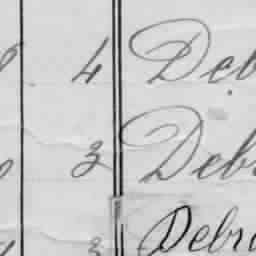 4 Deb
3 Deb
3 Debr